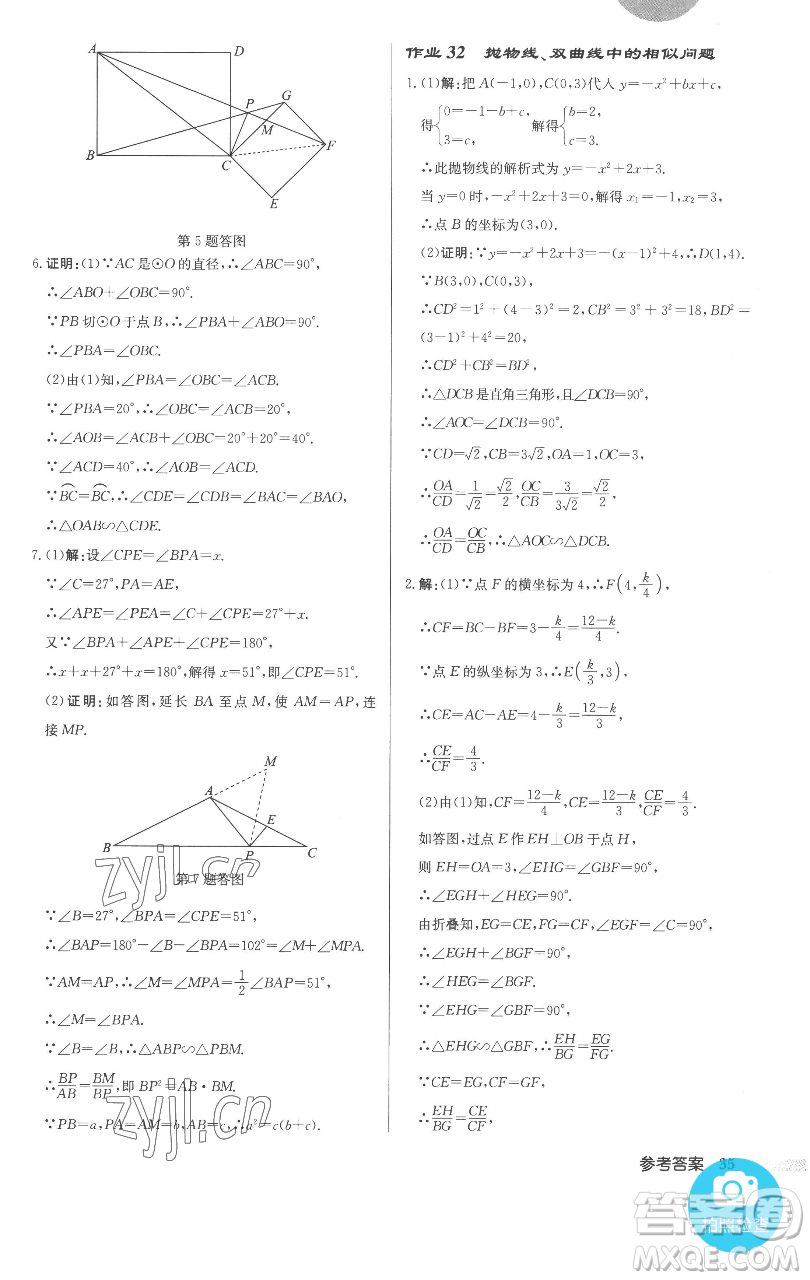 A
D
G
P
M
F
B
C
E
第5题答图
6.证明:(1)∵AC是⊙O的直径,∴∠ABC=90°,
∴∠ABO+∠OBC=90°.
∵PB切⊙O于点B,∴∠PBA+∠ABO=90°.
∴∠PBA=∠OBC.
(2)由(1)知,∠PBA=∠OBC=∠ACB.
∵∠PBA=20°,∴∠OBC=∠ACB=20°,
∴∠AOB=∠ACB+∠OBC=20°+20°=40°.
∵∠ACD=40°,∴∠AOB=∠ACD.
∵BC⌒=BC⌒,∴∠CDE=∠CDB=∠BAC=∠BAO,
∴△OAB∽△CDE.
7.(1)解:设∠CPE=∠BPA=x.
∵∠C=27°,PA=AE,
∴∠APE=∠PEA=∠C+∠CPE=27°+x.
又∵∠BPA+∠APE+∠CPE=180°,
∴x+x+27°+x=180°,解得x=51°,即∠CPE=51°.
(2)证明:如答图,延长BA至点M,使AM=AP,连
接MP.
M
A
E
B
P
C
第7题答图
∵∠B=27°,∠BPA=∠CPE=51°,
∴∠BAP=180°-∠B-∠BPA=102°=∠M+∠MPA.
∵AM=AP,∴∠M=∠MPA=1/2∠BAP=51°,
∴∠M=∠BPA.
∵∠B=∠B,∴△ABP∽△PBM.
∴BP/AB=BM/BP,即BP²=AB·BM.
∵PB=a,PA=AM=b,AB=c,∴a²=c(b+c).
作业32 抛物线、双曲线中的相似问题
1.(1)解:把A(-1,0),C(0,3)代入y=-x²+bx+c,
得{0=-1-b+c, 3=c, 解得{b=2, c=3.
∴此抛物线的解析式为y=-x²+2x+3.
当y=0时,-x²+2x+3=0,解得x₁=-1,x₂=3,
∴点B的坐标为(3,0).
(2)证明:∵y=-x²+2x+3=-(x-1)²+4,∴D(1,4).
∵B(3,0),C(0,3),
∴CD²=1²+(4-3)²=2,CB²=3²+3²=18,BD²=
(3-1)²+4²=20,
∴CD²+CB²=BD²,
∴△DCB是直角三角形,且∠DCB=90°,
∴∠AOC=∠DCB=90°.
∵CD=√2,CB=3√2,OA=1,OC=3,
∴OA/CD=1/√2=√2/2,OC/CB=3/3√2=√2/2,
∴OA/CD=OC/CB,∴△AOC∽△DCB.
2.解:(1)∵点F的横坐标为4,∴F(4,k/4),
∴CF=BC-BF=3-k/4=12-k/4.
∵点E的纵坐标为3,∴E(k/3,3),
∴CE=AC-AE=4-k/3=12-k/3,
∴CE/CF=4/3.
(2)由(1)知,CF=12-k/4,CE=12-k/3,CE/CF=4/3.
如答图,过点E作EH⊥OB于点H,
则EH=OA=3,∠EHG=∠GBF=90°,
∴∠EGH+∠HEG=90°.
由折叠知,EG=CE,FG=CF,∠EGF=∠C=90°,
∴∠EGH+∠BGF=90°,
∴∠HEG=∠BGF.
∵∠EHG=∠GBF=90°,
∴△EHG∽△GBF,∴EH/BG=EG/FG.
∵CE=EG,CF=GF,
∴EH/BG=CE/CF,
参考答案 35
zyjl.cn
zyjl.cn
答案卷
拍照检查
MXQE.COM